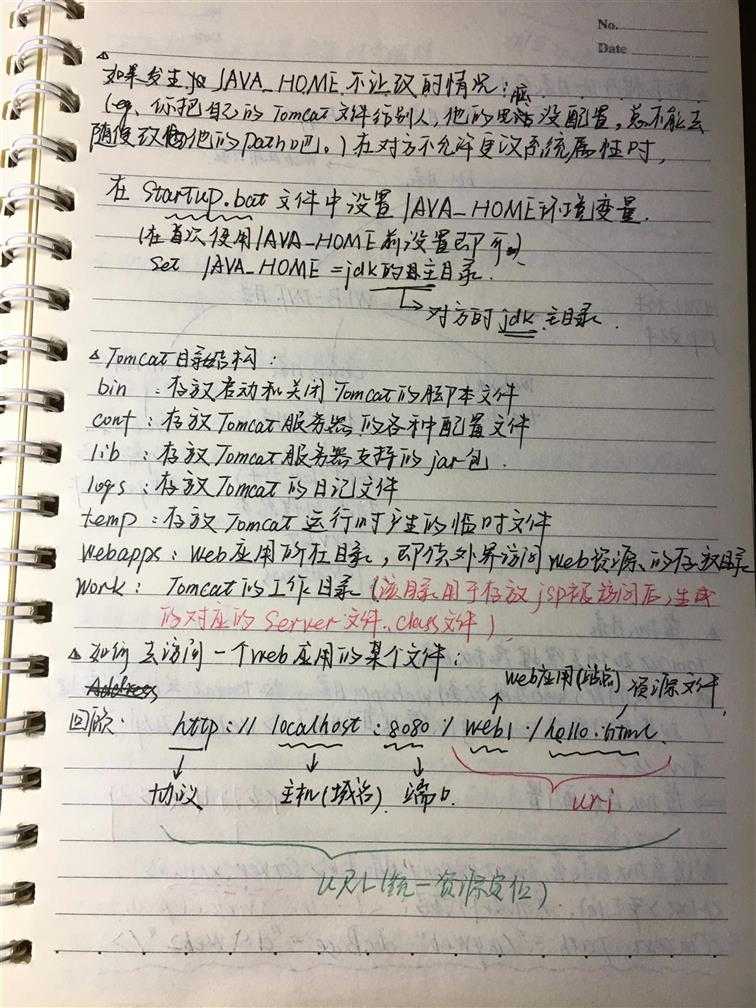 No.
Date
△
如果发生如 JAVA_HOME 不让改的情况:
(eg. 你把自己的 Tomcat 文件给别人, 他的电脑没配置, 总不能去
随便改他的 path 吧。) 在对方不允许更改系统属性时,
在 Startup.bat 文件中设置 JAVA_HOME 环境变量.
(在首次使用 JAVA_HOME 前设置即可)
Set JAVA_HOME = jdk的主目录.
对方的 jdk 主目录.
△ Tomcat目录结构:
bin : 存放启动和关闭 Tomcat的脚本文件
conf : 存放Tomcat服务器的各种配置文件
lib : 存放Tomcat服务器支持的jar包.
logs : 存放Tomcat的日记文件
temp : 存放Tomcat运行时产生的临时文件
webapps : web应用所在目录, 即供外界访问web资源的存放目录
work : Tomcat的工作目录 (该目录用于存放jsp被访问后,生成
的对应的Server文件.class文件)
△ 如何去访问一个web应用的某个文件:
Address
web应用(站点) 资源文件
回顾: http :// localhost : 8080 / web1 / hello.html
协议 主机(域名) 端口 uri
URL(统一资源定位)